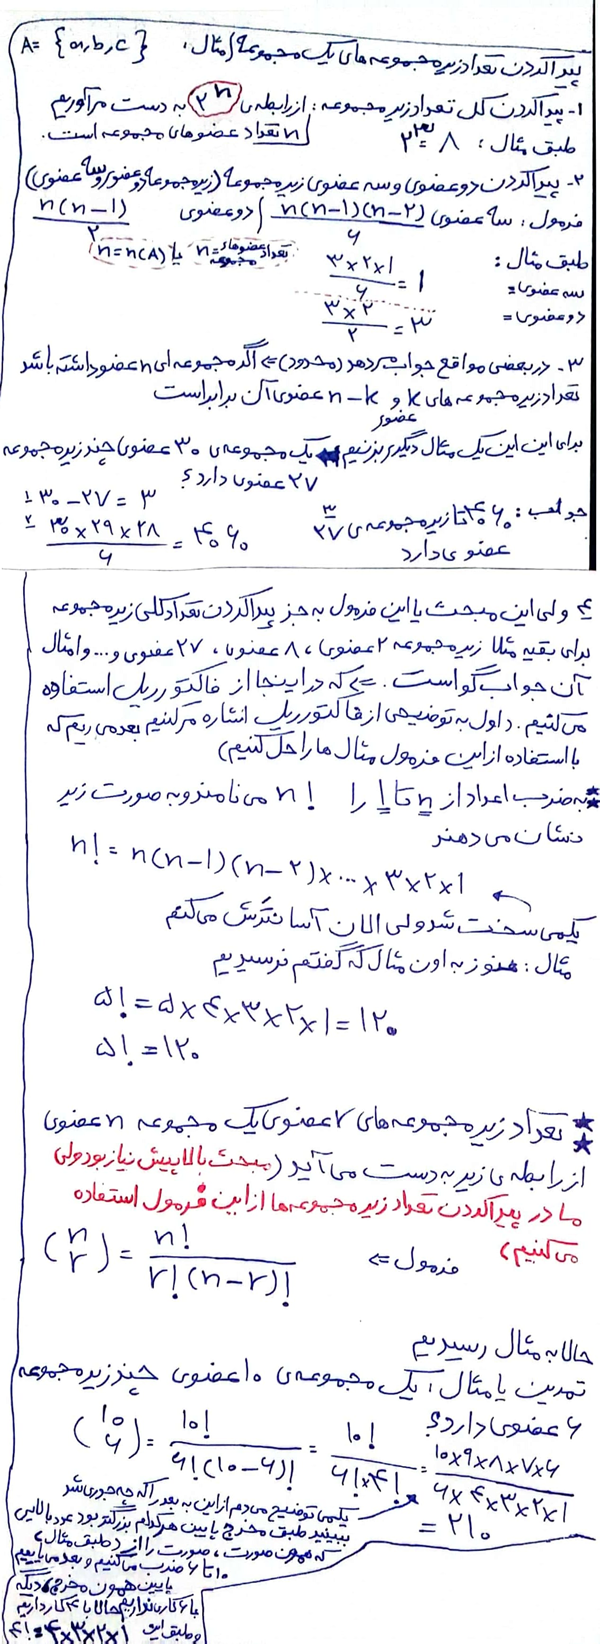 پیدا کردن تعداد زیرمجموعه های یک مجموعه / مثال: A= {a,b,c}
۱- پیدا کردن کل تعداد زیرمجموعه: از رابطه ی ۲ⁿ به دست می آوریم
n تعداد عضوهای مجموعه است.
طبق مثال: ۲³ = ۸
۲- پیدا کردن دو عضوی و سه عضوی زیرمجموعه (زیرمجموعه دو عضوی و سه عضوی)
فرمول: سه عضوی n(n-1)(n-۲)/۶ / دو عضوی n(n-1)/۲
n = تعداد عضوهای مجموعه یا n=n(A)
طبق مثال:
سه عضوی = ۳×۲×۱/۶ = ۱
دو عضوی = ۳×۲/۲ = ۳
۳- در بعضی مواقع جواب می دهد (محدود) ⇐ اگر مجموعه ای n عضو داشته باشد
تعداد زیرمجموعه های k عضوی و n-k عضوی آن برابر است
برای این یک مثال دیگری بزنیم ⇐ یک مجموعه ی ۳۰ عضوی چند زیرمجموعه
۲۷ عضوی دارد؟
۱- ۳۰-۲۷ = ۳
۲- ۳۰×۲۹×۲۸/۶ = ۴۰۶۰
جواب: ۴۰۶۰ تا زیرمجموعه ی ۳ ۲۷
عضوی دارد
۴- ولی این مبحث یا این فرمول به جز پیدا کردن تعداد کلی زیرمجموعه
برای بقیه مثلا زیرمجموعه ۲ عضوی، ۸ عضوی، ۲۷ عضوی و... و امثال
آن جواب گو است. ⇐ که در اینجا از فاکتوریل استفاده
می کنیم. (اول به توضیحی از فاکتوریل اشاره می کنیم بعد می ریم که
با استفاده از این فرمول مثال ها را حل کنیم)
** به ضرب اعداد از n تا 1 را n! می نامند و به صورت زیر
نشان می دهند
n! = n(n-1)(n-۲)×...×۳×۲×۱
یکمی سخت شد ولی الان آسانترش می کنم
مثال: هنوز به اون مثال که گفتم نرسیدیم
۵! = ۵×۴×۳×۲×۱ = ۱۲۰
۵! = ۱۲۰
** تعداد زیرمجموعه های r عضوی یک مجموعه n عضوی
از رابطه ی زیر به دست می آید (مبحث بالا پیش نیاز بود ولی
ما در پیدا کردن تعداد زیرمجموعه ها از این فرمول استفاده
می کنیم)
فرمول ⇐ (n r) = n!/r!(n-r)!
حالا به مثال رسیدیم
تمرین یا مثال: یک مجموعه ی ۱۰ عضوی چند زیرمجموعه
۶ عضوی دارد؟
(۱۰ ۶) = ۱۰!/۶!(۱۰-۶)! = ۱۰!/۶!×۴! = ۱۰×۹×۸×۷×۶/۶×۴×۳×۲×۱
= ۲۱۰
یکمی توضیح می دم از این به بعد را که چه جوری شد
ببینید طبق مخرج پایین هر کدام بزرگتر بود عدد بالایی
که همون صورت، صورت را از (طبق مثال)
۱۰ تا ۶ ضرب می کنیم و بعد می یاییم
پایین همون مخرج، دیگه
با ۶ کاری نداریم حالا با ۴ کار داریم
و طبق این ۴! = ۴×۳×۲×۱